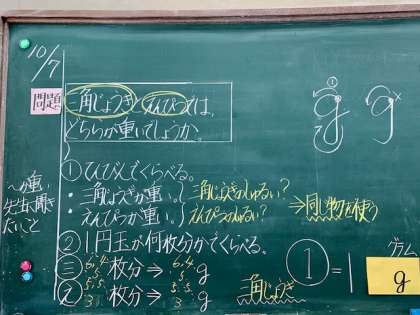 10/7
問題
三角じょうぎとえんぴつでは、
どちらが重いでしょうか。
①てんびんでくらべる。
・三角じょうぎが重い。
・えんぴつが重い。
三角じょうぎのしゅるい?
えんぴつのしゅるい?
⇒同じ物を使う
②1円玉が何枚分かでくらべる。
三 6.4 5. 枚分⇒ 6.4 5. g
え 5.5. 3. 枚分⇒ 5.5. 3 g
三角じょうぎ
① g
g ×
①=1
グラム
g
たいこと